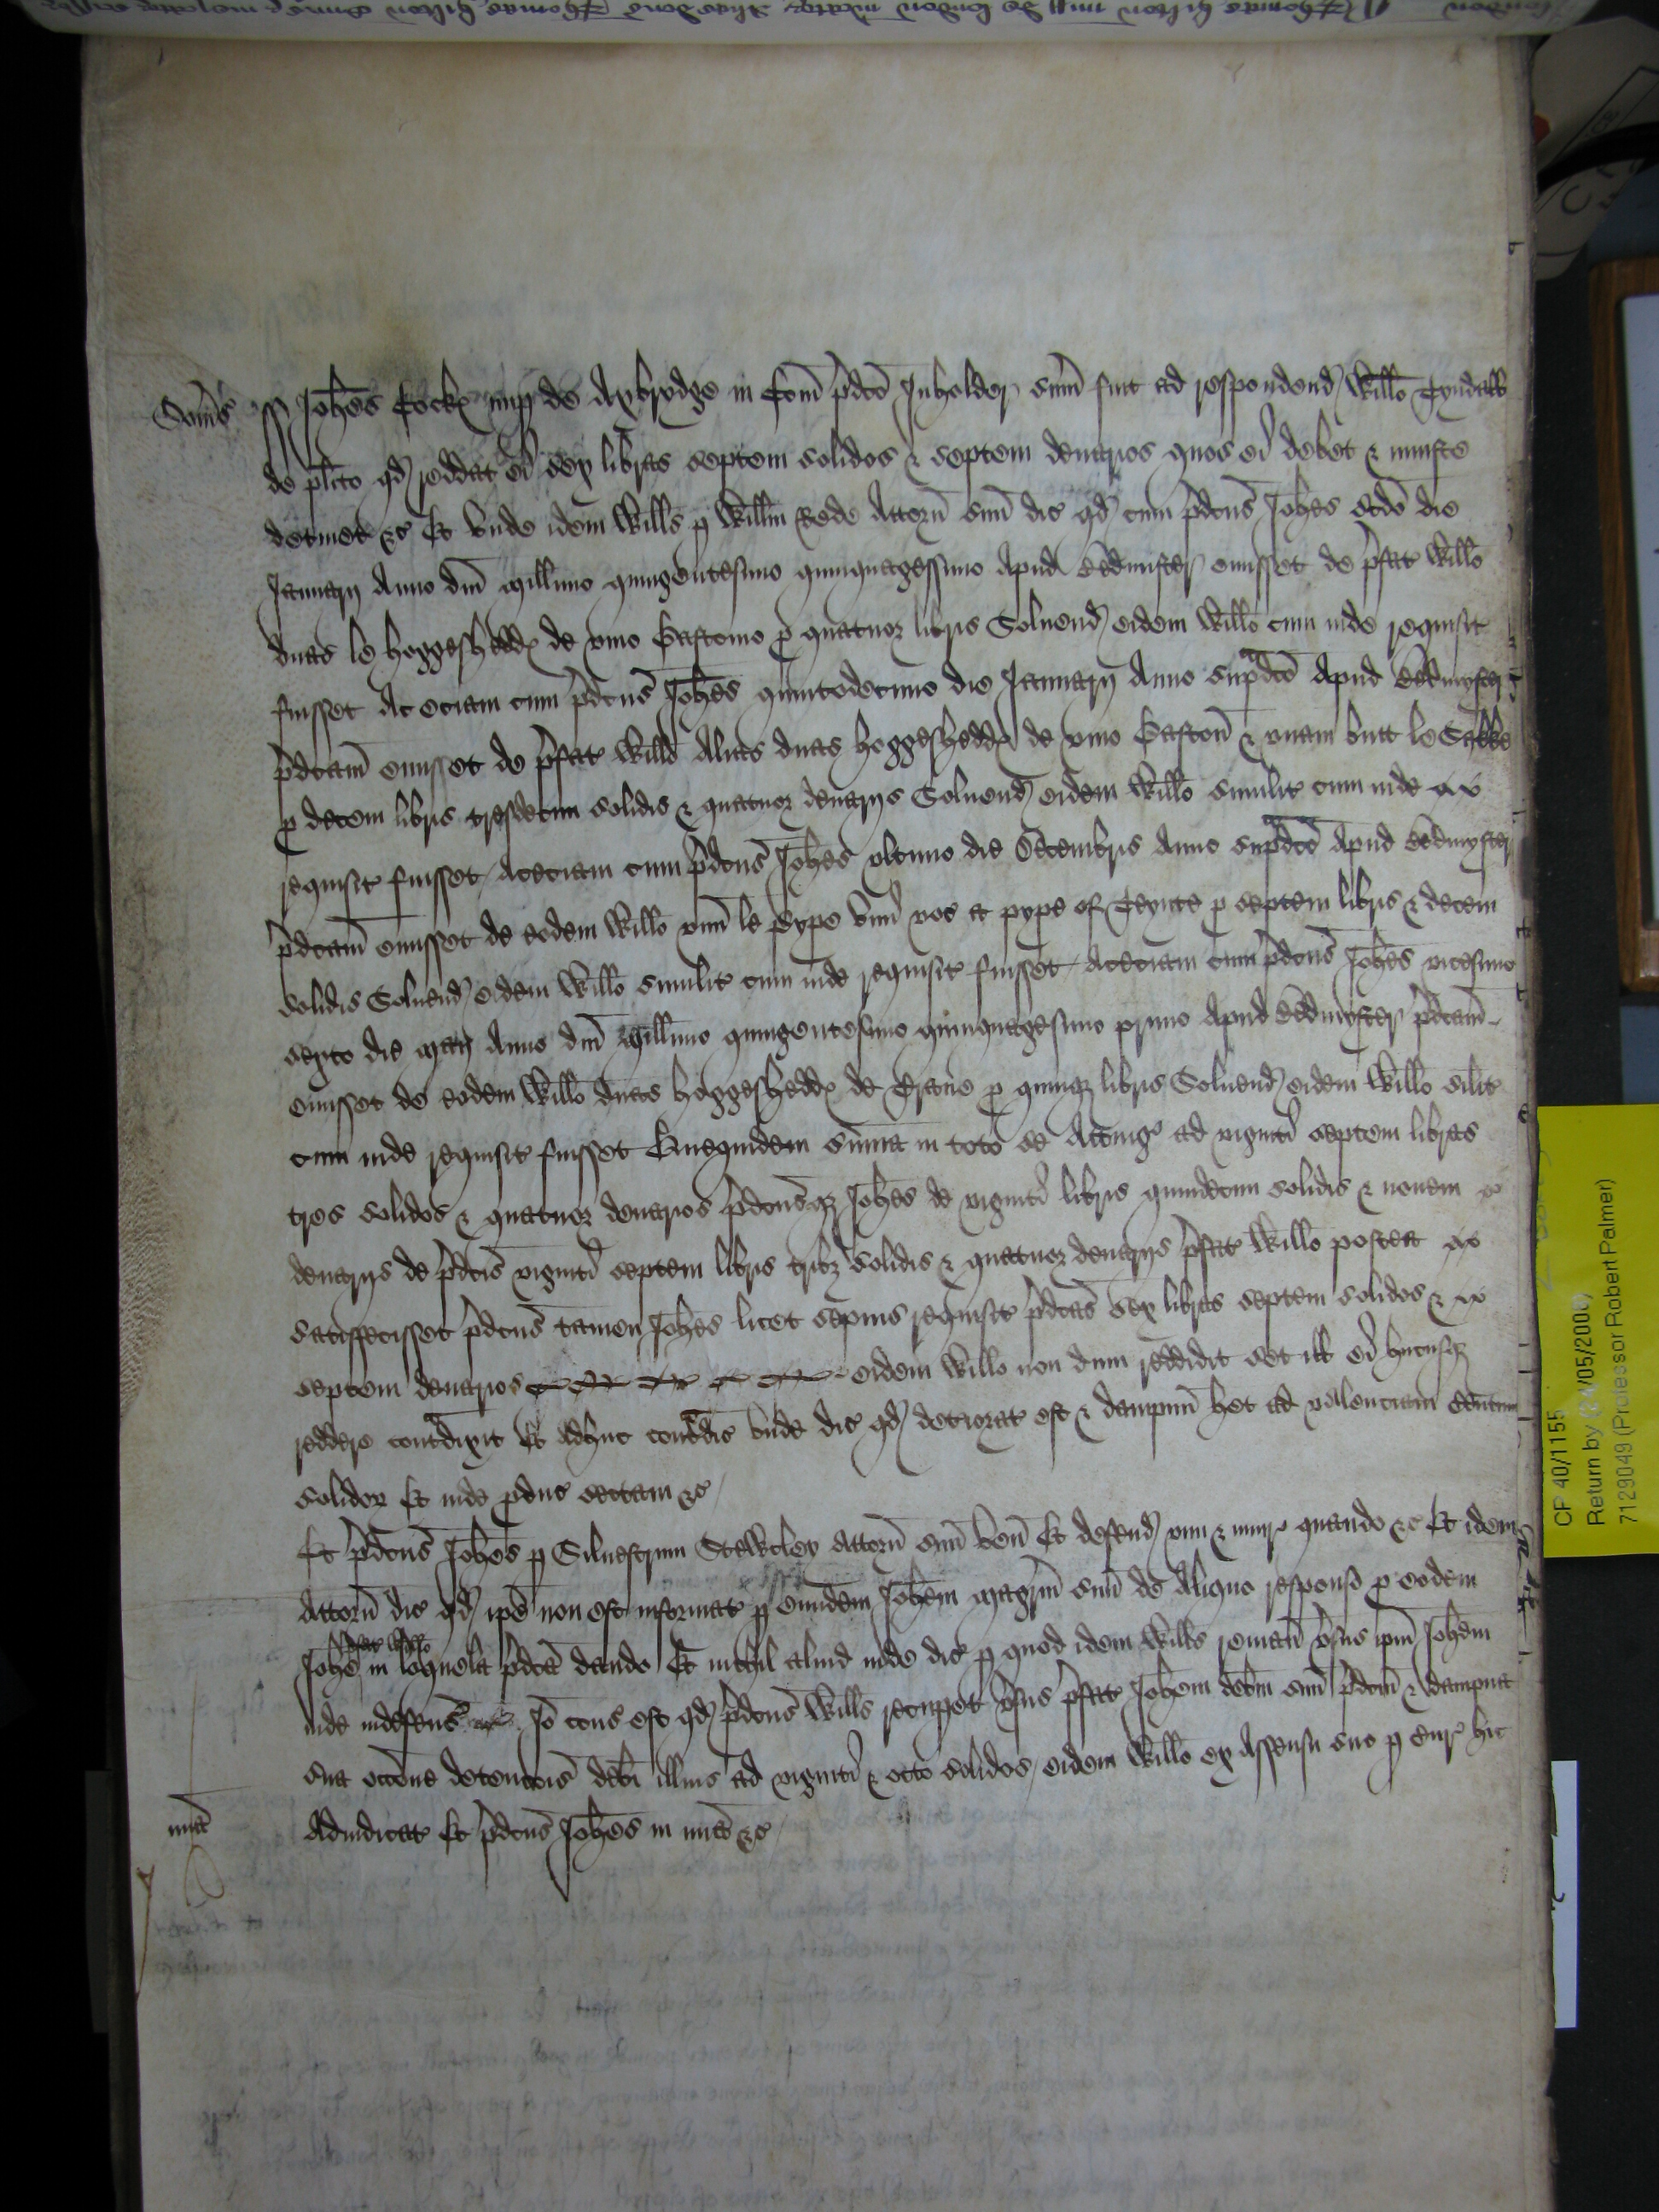 Som̃s ss Joħes Cockꝭ nup de Axbrydge in Com̃ p̃dc̃o Inholder sum̃ fuit ad respondend Willo Tyndall
de pl̃ito qd reddat ei sex libras septem solidos & septem denarios quos ei debet & iniuste
detinet &c Et unde idem Wills p Willm Rede Attorñ suũ dic qd cum p̃dcus Joħes octõ die
Januarij Anno dñi Millimo quingentesimo quinquagessimo apud Bedmister emisset de p̃fat Willo
duas le hoggesheddꝭ de vino Gastonio p quatuor libris Solvend eidem Willo cum inde requisit
fuisset Ac eciam cum p̃dcus Joħes quintodecimo die Januarij Anno sup̃dc̃o Apud Bedmyster
p̃dcam̃ emisset de p̃fat Willo alias duas hoggeshedds de vino Gastoñ & unam butt le Sakke
p decem libris tresdecim solidis & quatuor denarijs Solvend eidem Willo similit cum inde
requisit fuisset Aceciam cum p̃dcus Joħes ultimo die Decembris Anno sup̃dc̃o Apud Bedmyster
p̃dcam̃ emisset de eodem Willo unũ le pype vini voc a pype of Teynte p septem libris & decem
solidis Solvend eidem Willo similit cum inde requisit fuisset Aceciam cum p̃dcus Joħes vicesimo
sexto die Maij Anno dñi Millimo quingentesimo quinquagesimo primo Apud Bedmyster p̃dcam̃
emisset de eodem Willo duas hoggeshedds de p quinqz libris Solvend eidem Willo silit
cum inde requisit fuisset Quequidem sum̃a in toto se Atting ad viginti septem libras
tres solidos & quatuor denarios p̃dcusqz Joħes de viginti libris quindecim solidis & novem
denarijs de p̃dcis viginti septem libris tribz solidis & quatuor denarijs p̃fat Willo postea
satisfecisset p̃dcus tamen Joħes licet sepius requisit p̃dcas sex libras septem solidos &
septem denarios eidem Willo non dum reddidit set ill ei hucusqz
reddere cont̃dixit Et adhuc cont̃dic unde dic qd deteriorat est & dampnũ h̃et ad valenciam centum
solidoꝝ Et inde p̃duc sectam &c
Et p̃dcus Joħes p Silvestrum Stewcley Attorñ suũ veñ Et defend vim & iniur quando &c Et idem
Attorñ dic qd ip̃e non est informat p eundem Joħem Magrm̃ suũ de aliquo responso p eodem
Joħe p̃fat Willo in loquela p̃dc̃a dando Et nichil aliud inde dic p quod idem Wills remañ vsus ip̃m Joħem
inde indefens̃ Io cons est qd p̃dcus Wills recupet vsus p̃fat Joħem debm̃ suũ p̃dcm̃ & dampna
sua occõne detencõis debi illius ad viginti & octo solidos eidem Willo ex assensu suo p Cur hic
mĩa adiudicat Et p̃dcus Joħes in mĩa &c
CP 40/1155
Return by (24/05/2006)
7129049 (Professor Robert Palmer)